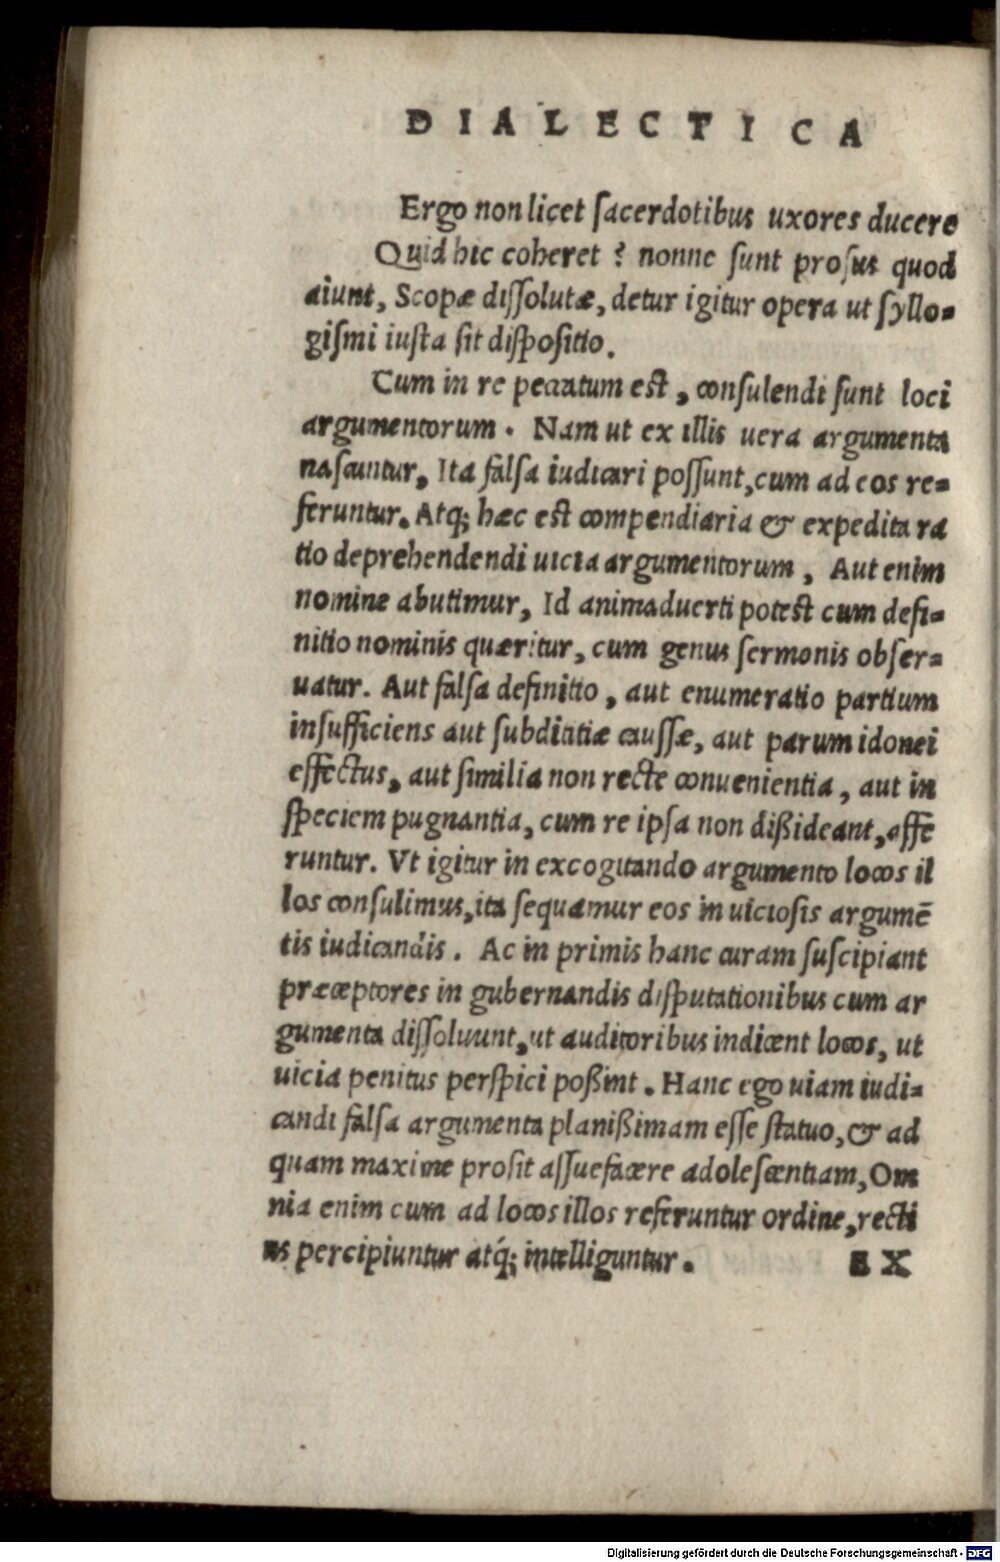 DIALECTICA
Ergo non licet ſacerdotibus uxores ducere
Quid hic coheret ? nonne ſunt proſus quod
aiunt, Scopæ diſſolutæ, detur igitur opera ut ſyllo-
giſmi iuſta ſit diſpoſitio.
Cum in re peccatum eſt, conſulendi ſunt loci
argumentorum. Nam ut ex illis uera argumenta
naſcuntur, Ita falſa iudicari poſſunt, cum ad eos re-
feruntur. Atq; hæc est compendiaria & expedita ra
tio deprehendendi uicia argumentorum, Aut enim
nomine abutimur, Id animaduerti poteſt cum defi-
nitio nominis quæritur, cum genus ſermonis obſer-
uatur. Aut falſa definitio, aut enumeratio partium
inſufficiens aut ſubdititiæ cauſſæ, aut parum idonei
effectus, aut ſimilia non recte conuenientia, aut in
ſpeciem pugnantia, cum re ipſa non dißideant, affe
runtur. Vt igitur in excogitando argumento locos il
los conſulimus, ita ſequamur eos in uicioſis argumē
tis iudicandis. Ac in primis hanc curam ſuſcipiant
præceptores in gubernandis diſputationibus cum ar
gumenta diſſoluunt, ut auditoribus indicent locos, ut
uicia penitus perſpici poßint. Hanc ego uiam iudi-
candi falſa argumenta planißimam eſſe ſtatuo, & ad
quam maxime proſit aſſuefacere adoleſcentiam, Om
nia enim cum ad locos illos referuntur ordine, recti
us percipiuntur atq́; intelliguntur. EX
Digitalisierung gefördert durch die Deutsche Forschungsgemeinschaft - DFG